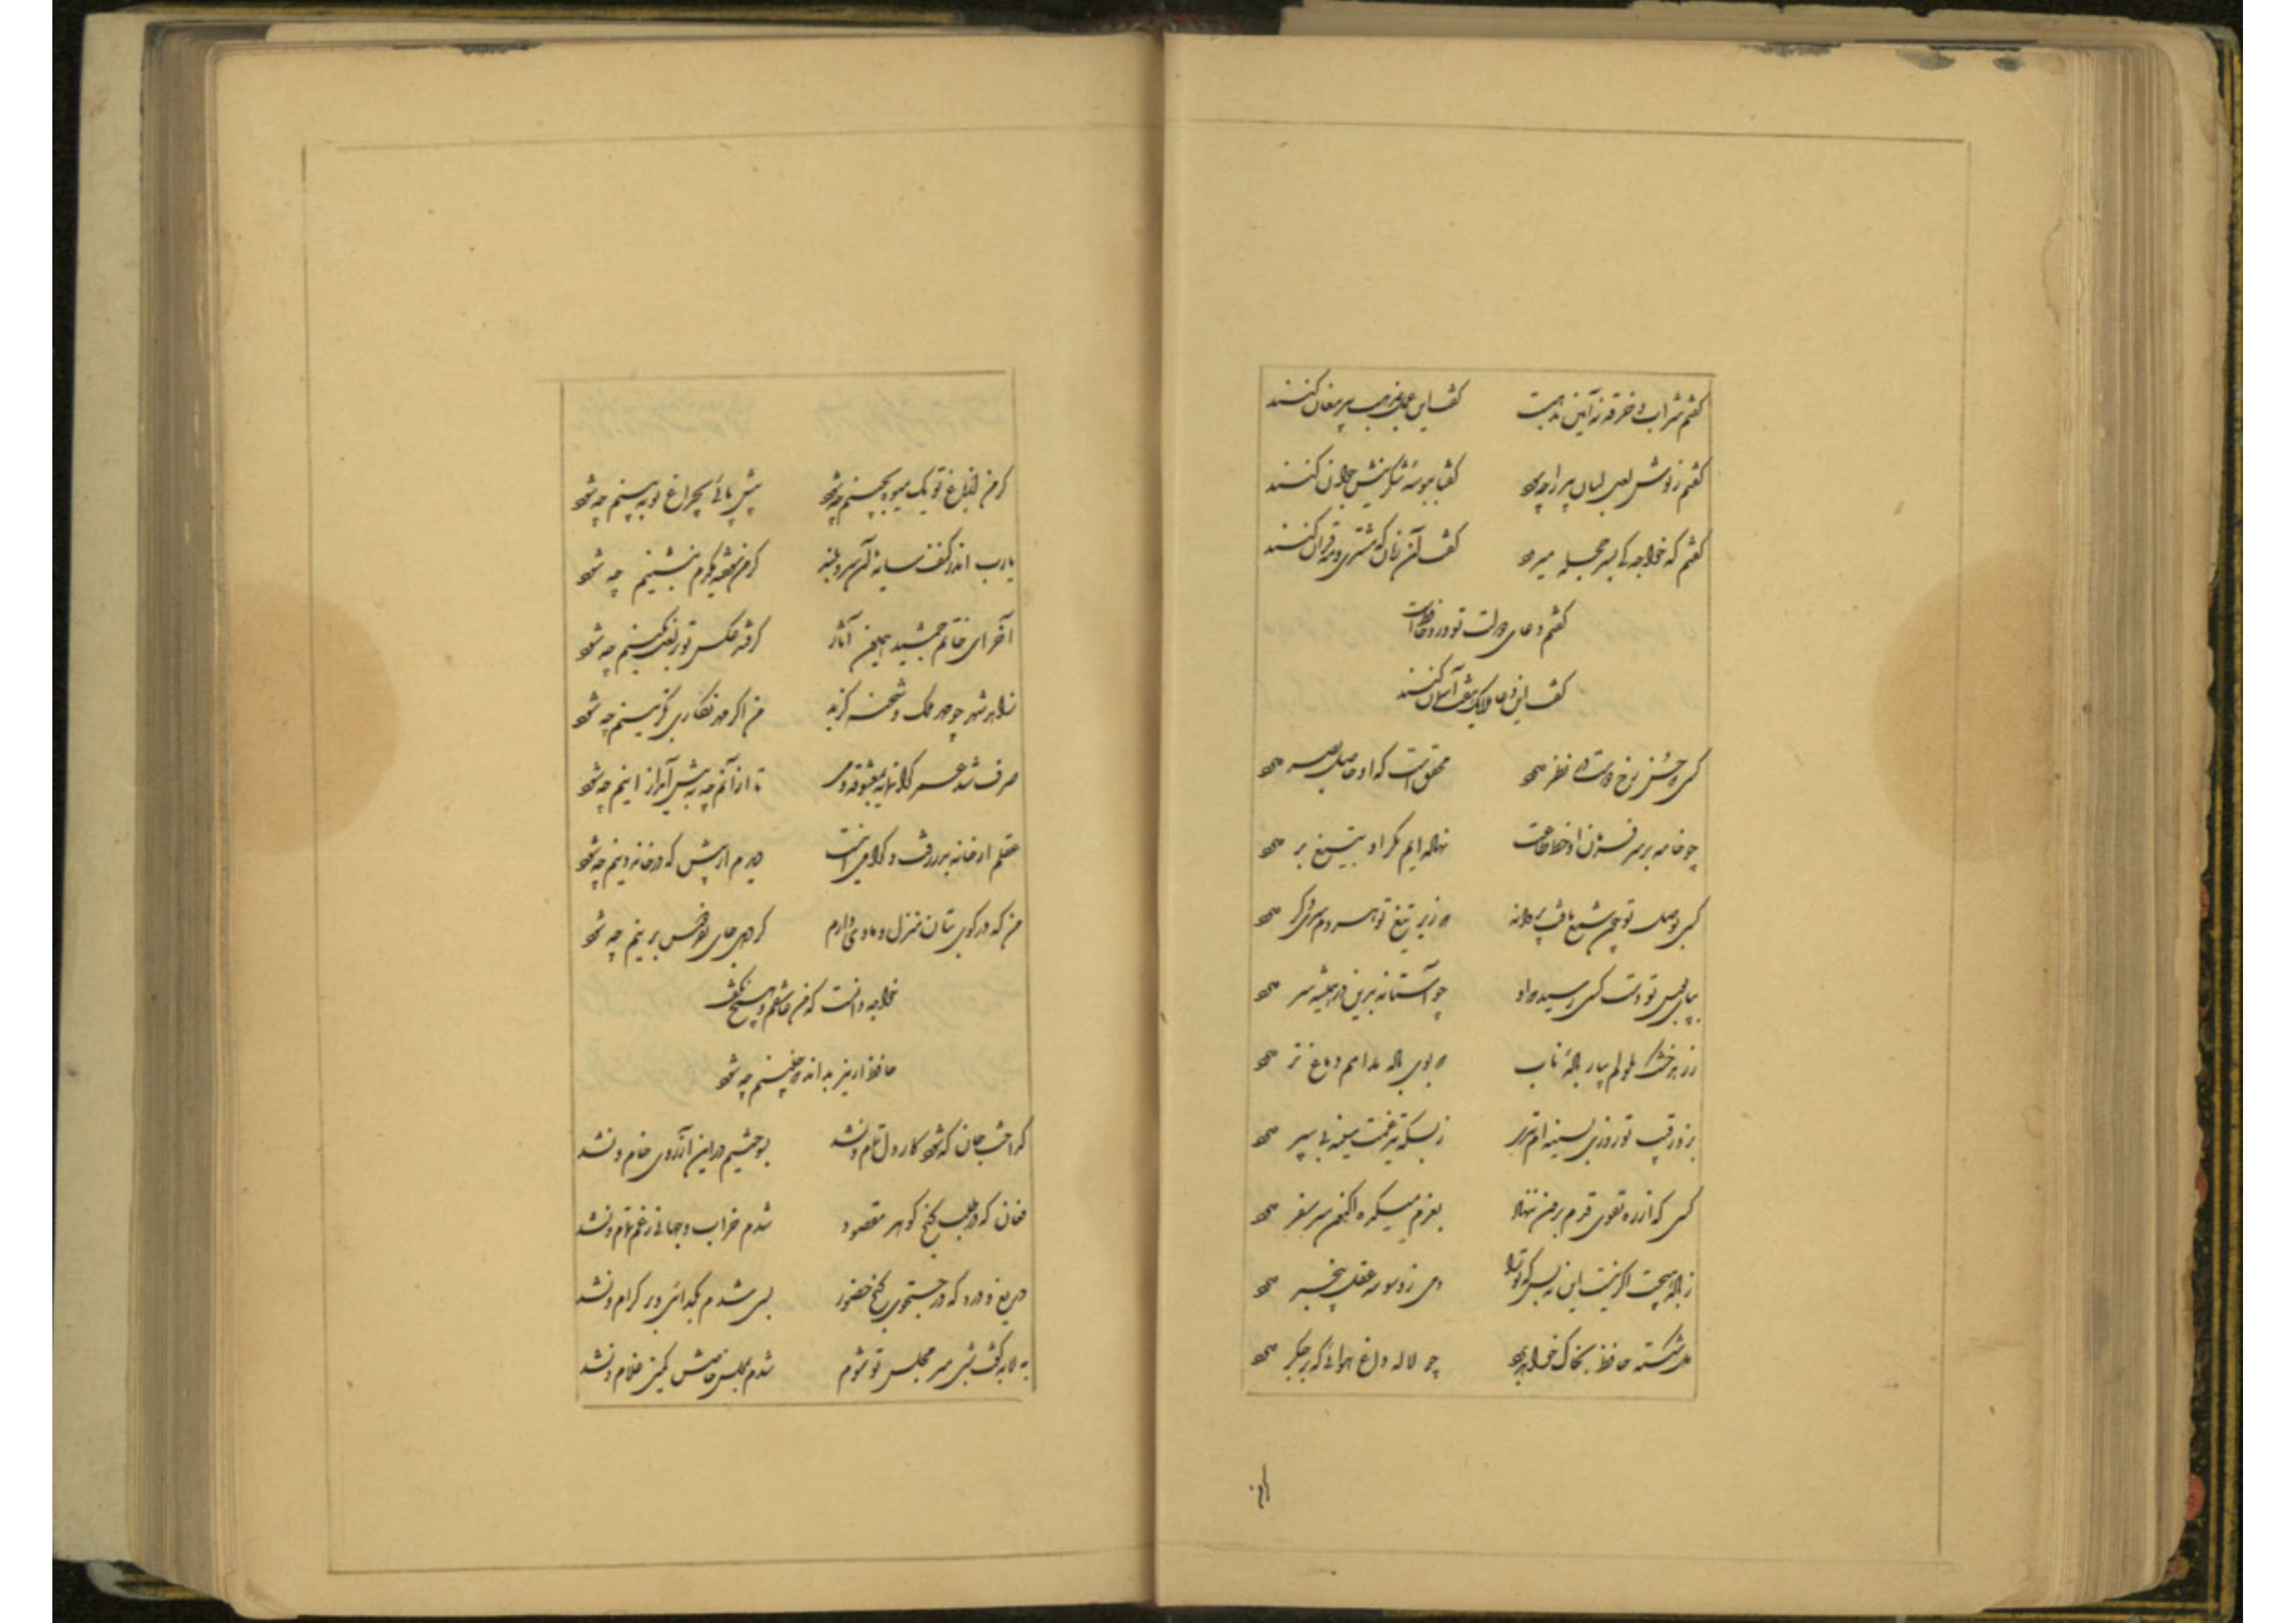 گفتم شراب و خرقه نه آیین مذهبست گفت این عمل بمذهب پیر مغان کنند
گفتم ز نوش لعل لبان پیر را چه سود گفتا ببوسه شکرینش جوان کنند
گفتم که خواجه کی بسر حجله میرود گفت آن زمان که مشتری و مه قران کنند
گفتم دعای دولت تو ورد حافظ است
گفت این دعا ملایک هفت آسمان کنند
کسی که حسن رخ دوست در نظر دارد محقق است که او حاصل بصر دارد
چو خامه بر سر فرمان او خط طاعت نهاده‌ایم مگر او بتیغ بر دارد
کسی بوصل تو چون شمع یافت پروانه که زیر تیغ تو هر دم سری دگر دارد
بپای بوس تو دست کسی رسید که او چو آستانه برین در همیشه سر دارد
ز زهد خشک ملولم بیار باده ناب که بوی باده مدامم دماغ تر دارد
بزد رقیب تو روزی بسینه‌ام تیری ز بسکه تیر غمت سینه بی سپر دارد
کسی که از ره تقوی قدم برون ننهاد بعزم میکده اکنون سر سفر دارد
ز باده هیچت اگر نیست این نه بس که ترا دمی ز وسوسه عقل بیخبر دارد
دل شکسته حافظ بخاک خواهد برد چو لاله داغ هوائی که بر جگر دارد
گر من
گر من از باغ تو یک میوه بچینم چه شود پیش پائی بچراغ تو ببینم چه شود
یارب اندر کنف سایه آن سرو بلند گر من سوخته یکدم بنشینم چه شود
آخر ای خاتم جمشید همایون آثار گر فتد عکس تو بر لعل نگینم چه شود
زاهد شهر چو مهر ملک و شحنه گزید من اگر مهر نگاری بگزینم چه شود
صرف شد عمر گرانمایه بمعشوقه و می تا از آنم چه بپیش آید از اینم چه شود
عقلم از خانه بدر رفت و اگر می اینست دیدم از پیش که در خانه دینم چه شود
من که در کوی بتان منزل و ماوی دارم گر دهی جای بفردوس برینم چه شود
خواجه دانست که من عاشقم و هیچ نگفت
حافظ ار نیز بداند که چنینم چه شود
گداخت جان که شود کار دل تمام و نشد بسوختیم در این آرزوی خام و نشد
فغان که در طلب گنج گوهر مقصود شدم خراب جهانی ز غم تمام و نشد
دریغ و درد که در جستجوی گنج حضور بسی شدم بگدائی بر کرام و نشد
به لابه گفت شبی میر مجلس تو شوم شدم بمجلس خاصش کمین غلام و نشد